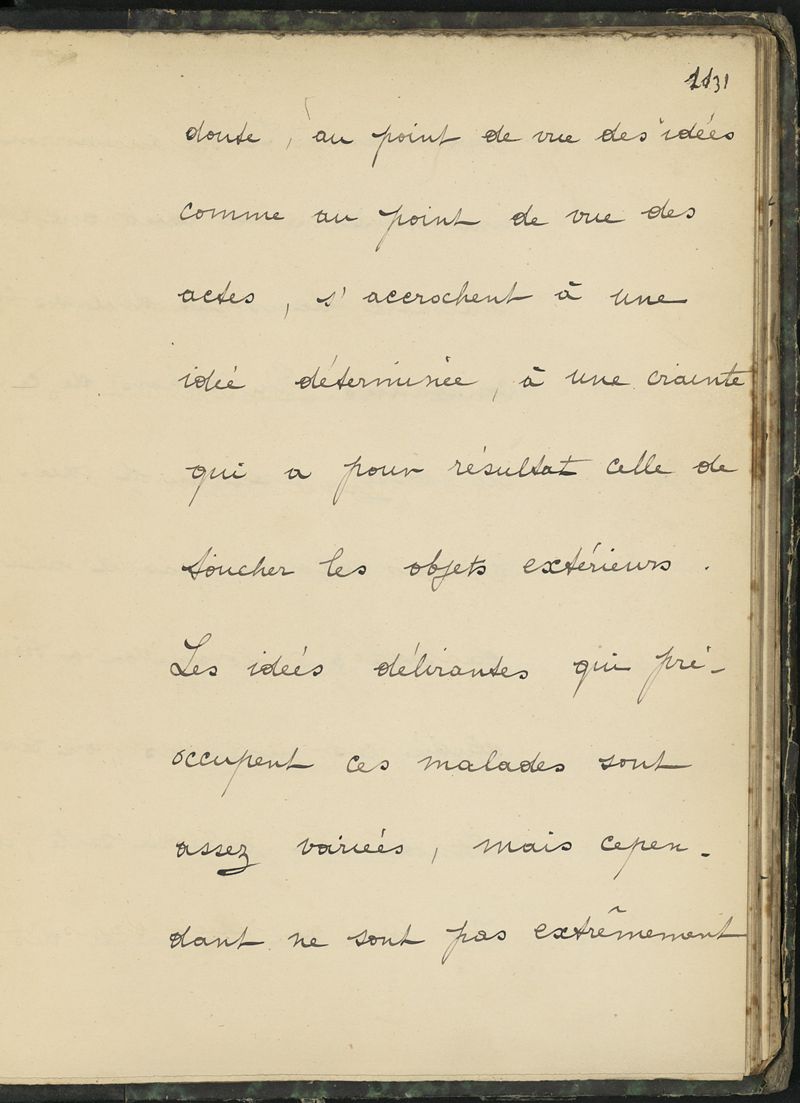 1131
doute, au point de vue des idées
comme au point de vue des
actes, s'accrochent à une
idée déterminée, à une crainte
qui a pour résultat celle de
toucher les objets extérieurs.
Les idées délirantes qui pré-
occupent ces malades sont
assez variées, mais cepen-
dant ne sont pas extrêmement